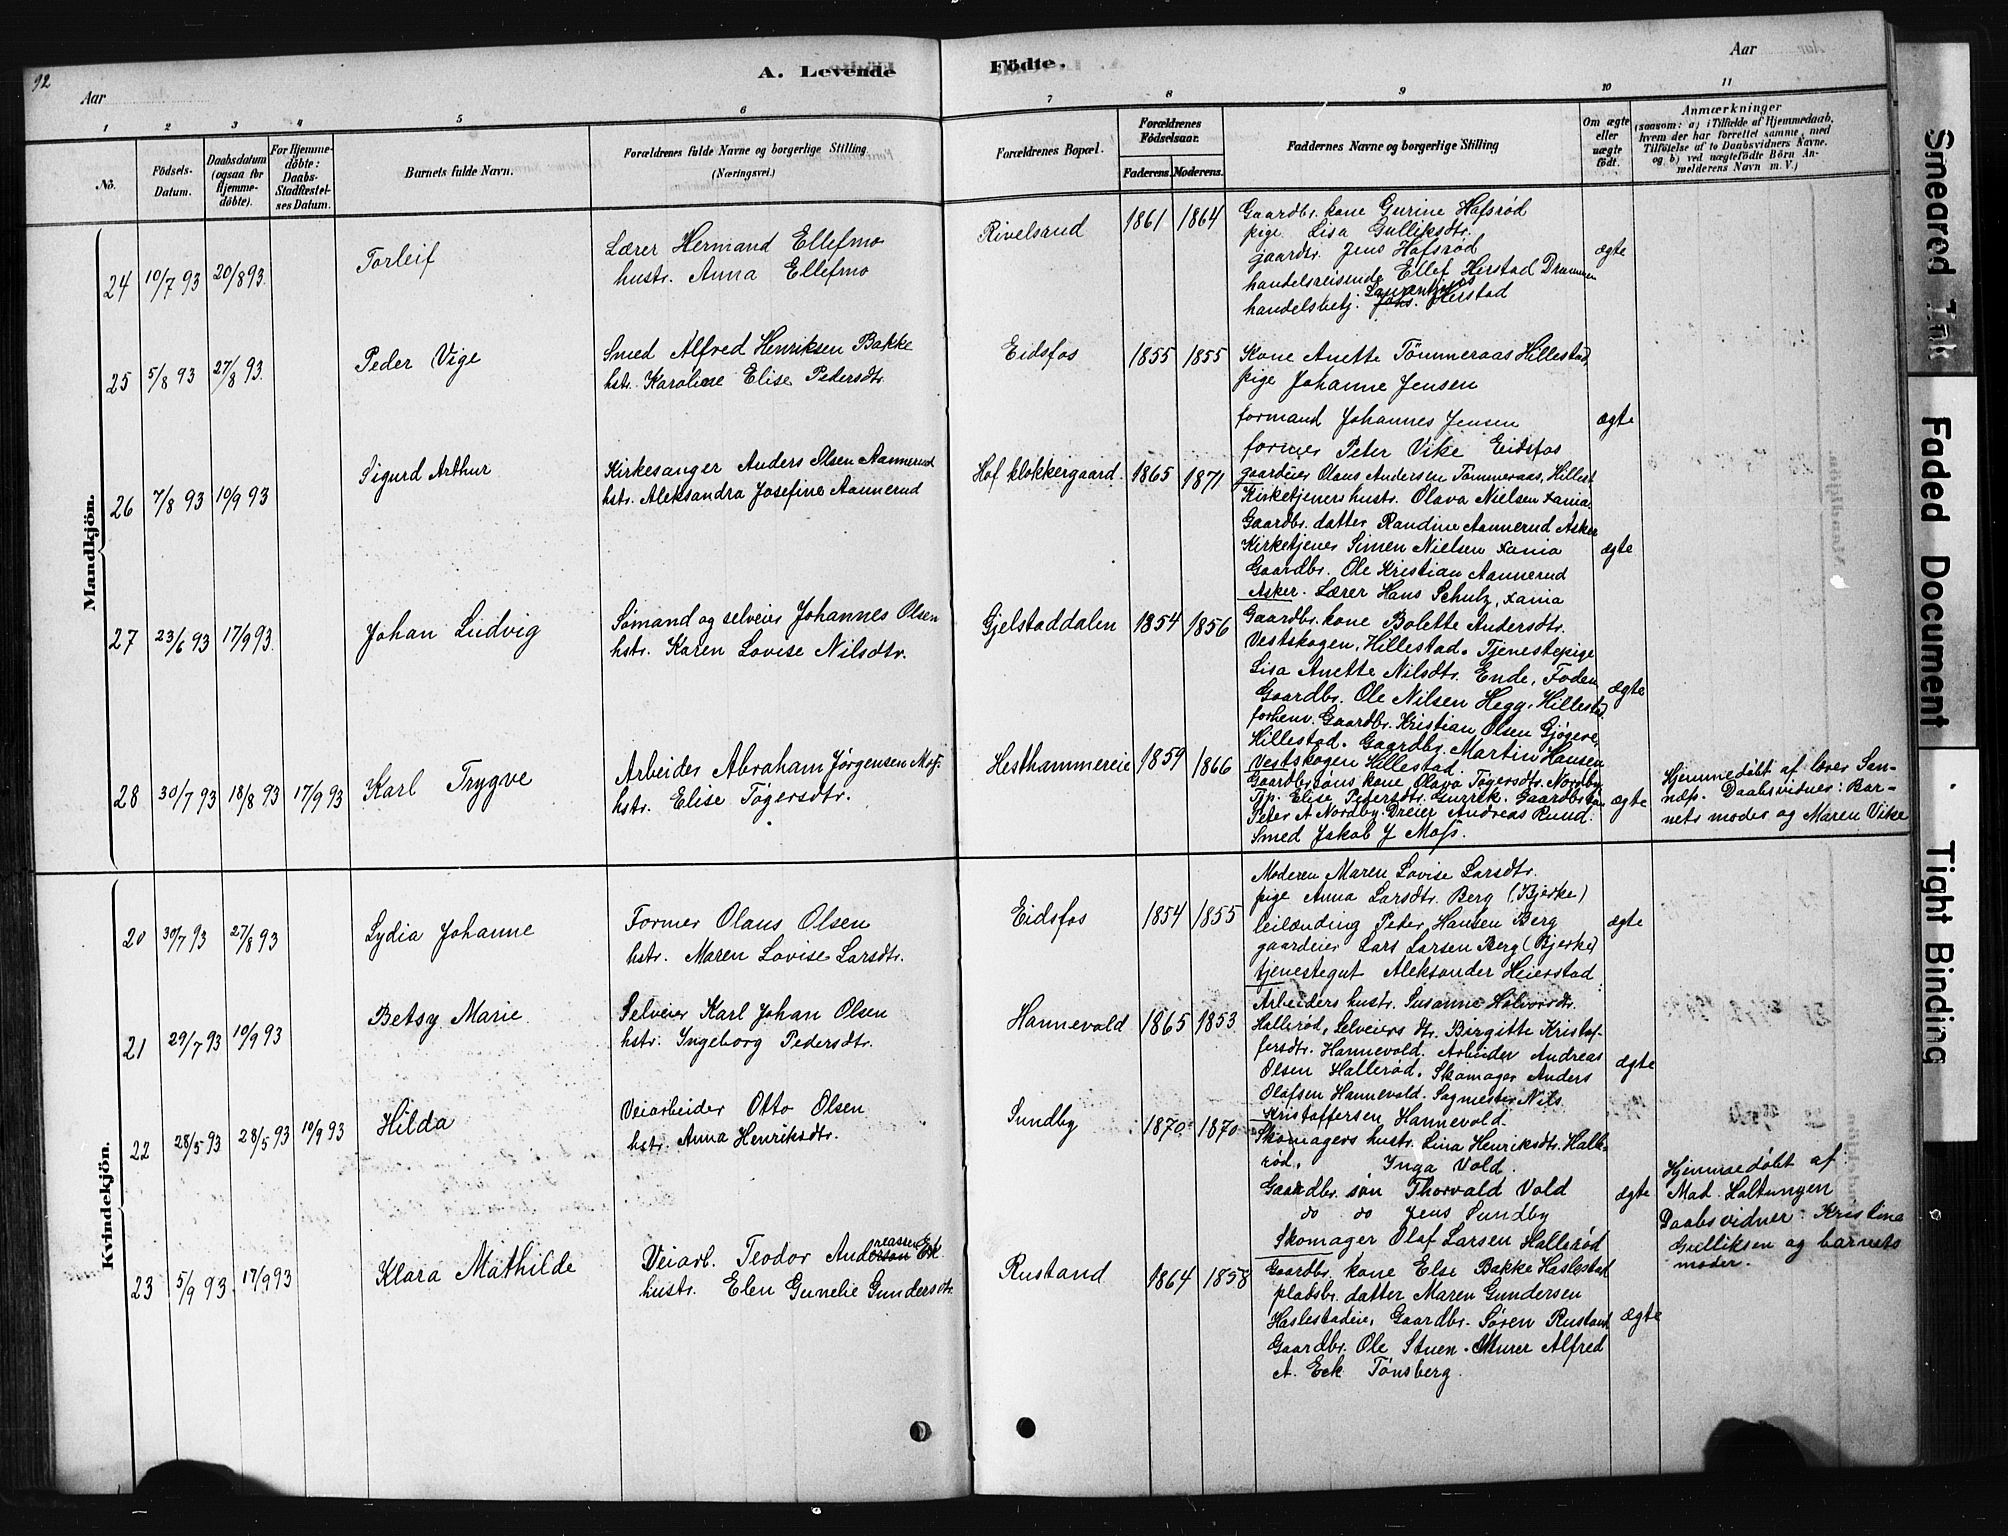 92
A. Levende
Födte.
Aar
Aar
1 2 3 4 5 6 7 8 9 10 11
No.
Födsels-Datum.
Daabsdatum (ogsaa for Hjemmedöbte).
For Hjemmedöbte: Daabs-Stadfæstelses Datum.
Barnets fulde Navn.
Forældrenes fulde Navne og borgerlige Stilling (Næringsvei.)
Forældrenes Bopæl.
Forældrenes Födselsaar.
Faderens. Moderens.
Faddernes Navne og borgerlige Stilling
Om ægte eller uægte födt.
Anmærkninger
(saasom: a) i Tilfælde af Hjemmedaab,
hvem der har forrettet samme, med
Tilföielse af to Daabsvidners Navne.
og b) ved uægtefödte Börn An-
melderens Navn m. V.)
Mandkjön.
24 10/7 93 20/8 93.
Torleif
Lærer Hermand Ellefmo
hustr. Anna Ellefmo
Rivelsrud
1861 1864
Gaardbr. kone Gurine Hafsrød
pige Lisa Gulliksdtr.
gaardbr. Jens Hafsrød
handelsreisende Ellef Herstad Drammen
handelsbetj. Laurentius Herstad
ægte
25 5/8 93 27/8 93.
Peder Vige
Smed Alfred Henriksen Bakke
hstr. Karoline Elise Pedersdtr.
Eidsfos
1855 1855
Kone Anette Tömmeraas Hillestad,
pige Johanne Jensen
formand Johannes Jensen
former Peter Vike Eidsfos
gaardeier Olaus Andersen Tömmeraas, Hillest
ægte
26 7/8 93 10/9 93
Sigurd Arthur
Kirkesanger Anders Olsen Aannerud
hstr. Aleksandra Josefine Aannerud
Hof klokkergaard.
1865 1871
Kirketjeners hustr. Olava Nielsen Xania
Gaardbr. datter Randine Aannerud Asker
Kirketjener Simen Nielsen Xania
Gaardbr. Ole Kristian Aannerud
Asker. Lærer Hans Schulz, Xania
ægte
27 23/6 93 17/9 93.
Johan Ludvig
Sømand og selveier Johannes Olsen
hstr. Karen Lovise Nilsdtr.
Gjelstaddalen
1854 1856
Gaardbr. kone Bolette Andersdtr.
Vestskogen, Hillestad. Tjenestepige
Lisa Anette Nilsdtr. Ende, Foden
Gaardbr. Ole Nilsen Hegg, Hillestad.
forhenv. Gaardbr. Kristian Olsen Gjøgere,
Hillestad. Gaardbr. Martin Hansen
Vestskogen Hillestad
ægte
28 30/7 93 18/8 93 17/9 93
Karl Trygve
Arbeider Abraham Jørgensen Mofs.
hstr. Elise Tøgersdtr.
Hesthammereie
1859 1866
Gaardbr. søns kone Olava Tøgersdtr. Nordby
Tjp. Elise Pedersdtr. Gurrik. Gaardbr. søn
Peter A Nordby. Dreier Andreas Rund.
Smed Jakob J Mofs.
ægte
Hjemmedøbt af: lærer San-
næs. Daabsvidner: Bar-
nets moder og Maren Vike
Kvindekjön.
20 30/7 93 27/8 93
Lydia Johanne
Former Olaus Olsen
hstr. Maren Lovise Larsdtr.
Eidsfos
1854 1855
Moderen Maren Lovise Larsdtr.
pige Anna Larsdtr. Berg (Bjerke)
leilænding Peter Hansen Berg
gaardeier Lars Larsen Berg (Bjerke)
tjenestegut Aleksander Heierstad
ægte
21 29/7 93 10/9 93
Betsy Marie
Selveier Karl Johan Olsen
hstr. Ingeborg Pedersdtr.
Hannevold
1865 1853.
Arbeiders hustr. Susanne Halvorsdtr.
Hallerød, Selveiers dtr. Birgitte Kristof-
fersdtr. Hannevold. Arbeider Andreas
Olsen Hallerød. Skomager Anders
Olafsen Hannevold. Sagmester Nils
Kristoffersen Hannevold.
ægte
22 28/5 93 28/5 93 10/9 93
Hilda
Veiarbeider Otto Olsen
hstr. Anna Henriksdtr.
Sundby
1870 1870
Skomagers hustr. Lina Henriksdtr. Halle-
rød. Inga Vold.
Gaardbr. søn Thorvald Vold
do do Jens Sundby
Skomager Olaf Larsen Hallerød
ægte
Hjemmedøbt af:
Mad. Holtungen
Daabsvidner: Kristina
Gulliksen og barnets
moder.
23 5/9 93 17/9 93
Klara Mathilde
Veiarb. Teodor Andreassen Eck
hustr. Elen Gunelie Gundersdtr.
Rustand
1864 1858
Gaardbr. kone Else Bakke Haslestad
pladsbr. datter Maren Gundersen
Haslestadeie, Gaardbr. Søren Rustand
Gaardbr. Ole Stuen. Murer Alfred
A. Eck Tønsberg.
ægte
Smeared Ink
Faded Document
Tight Binding